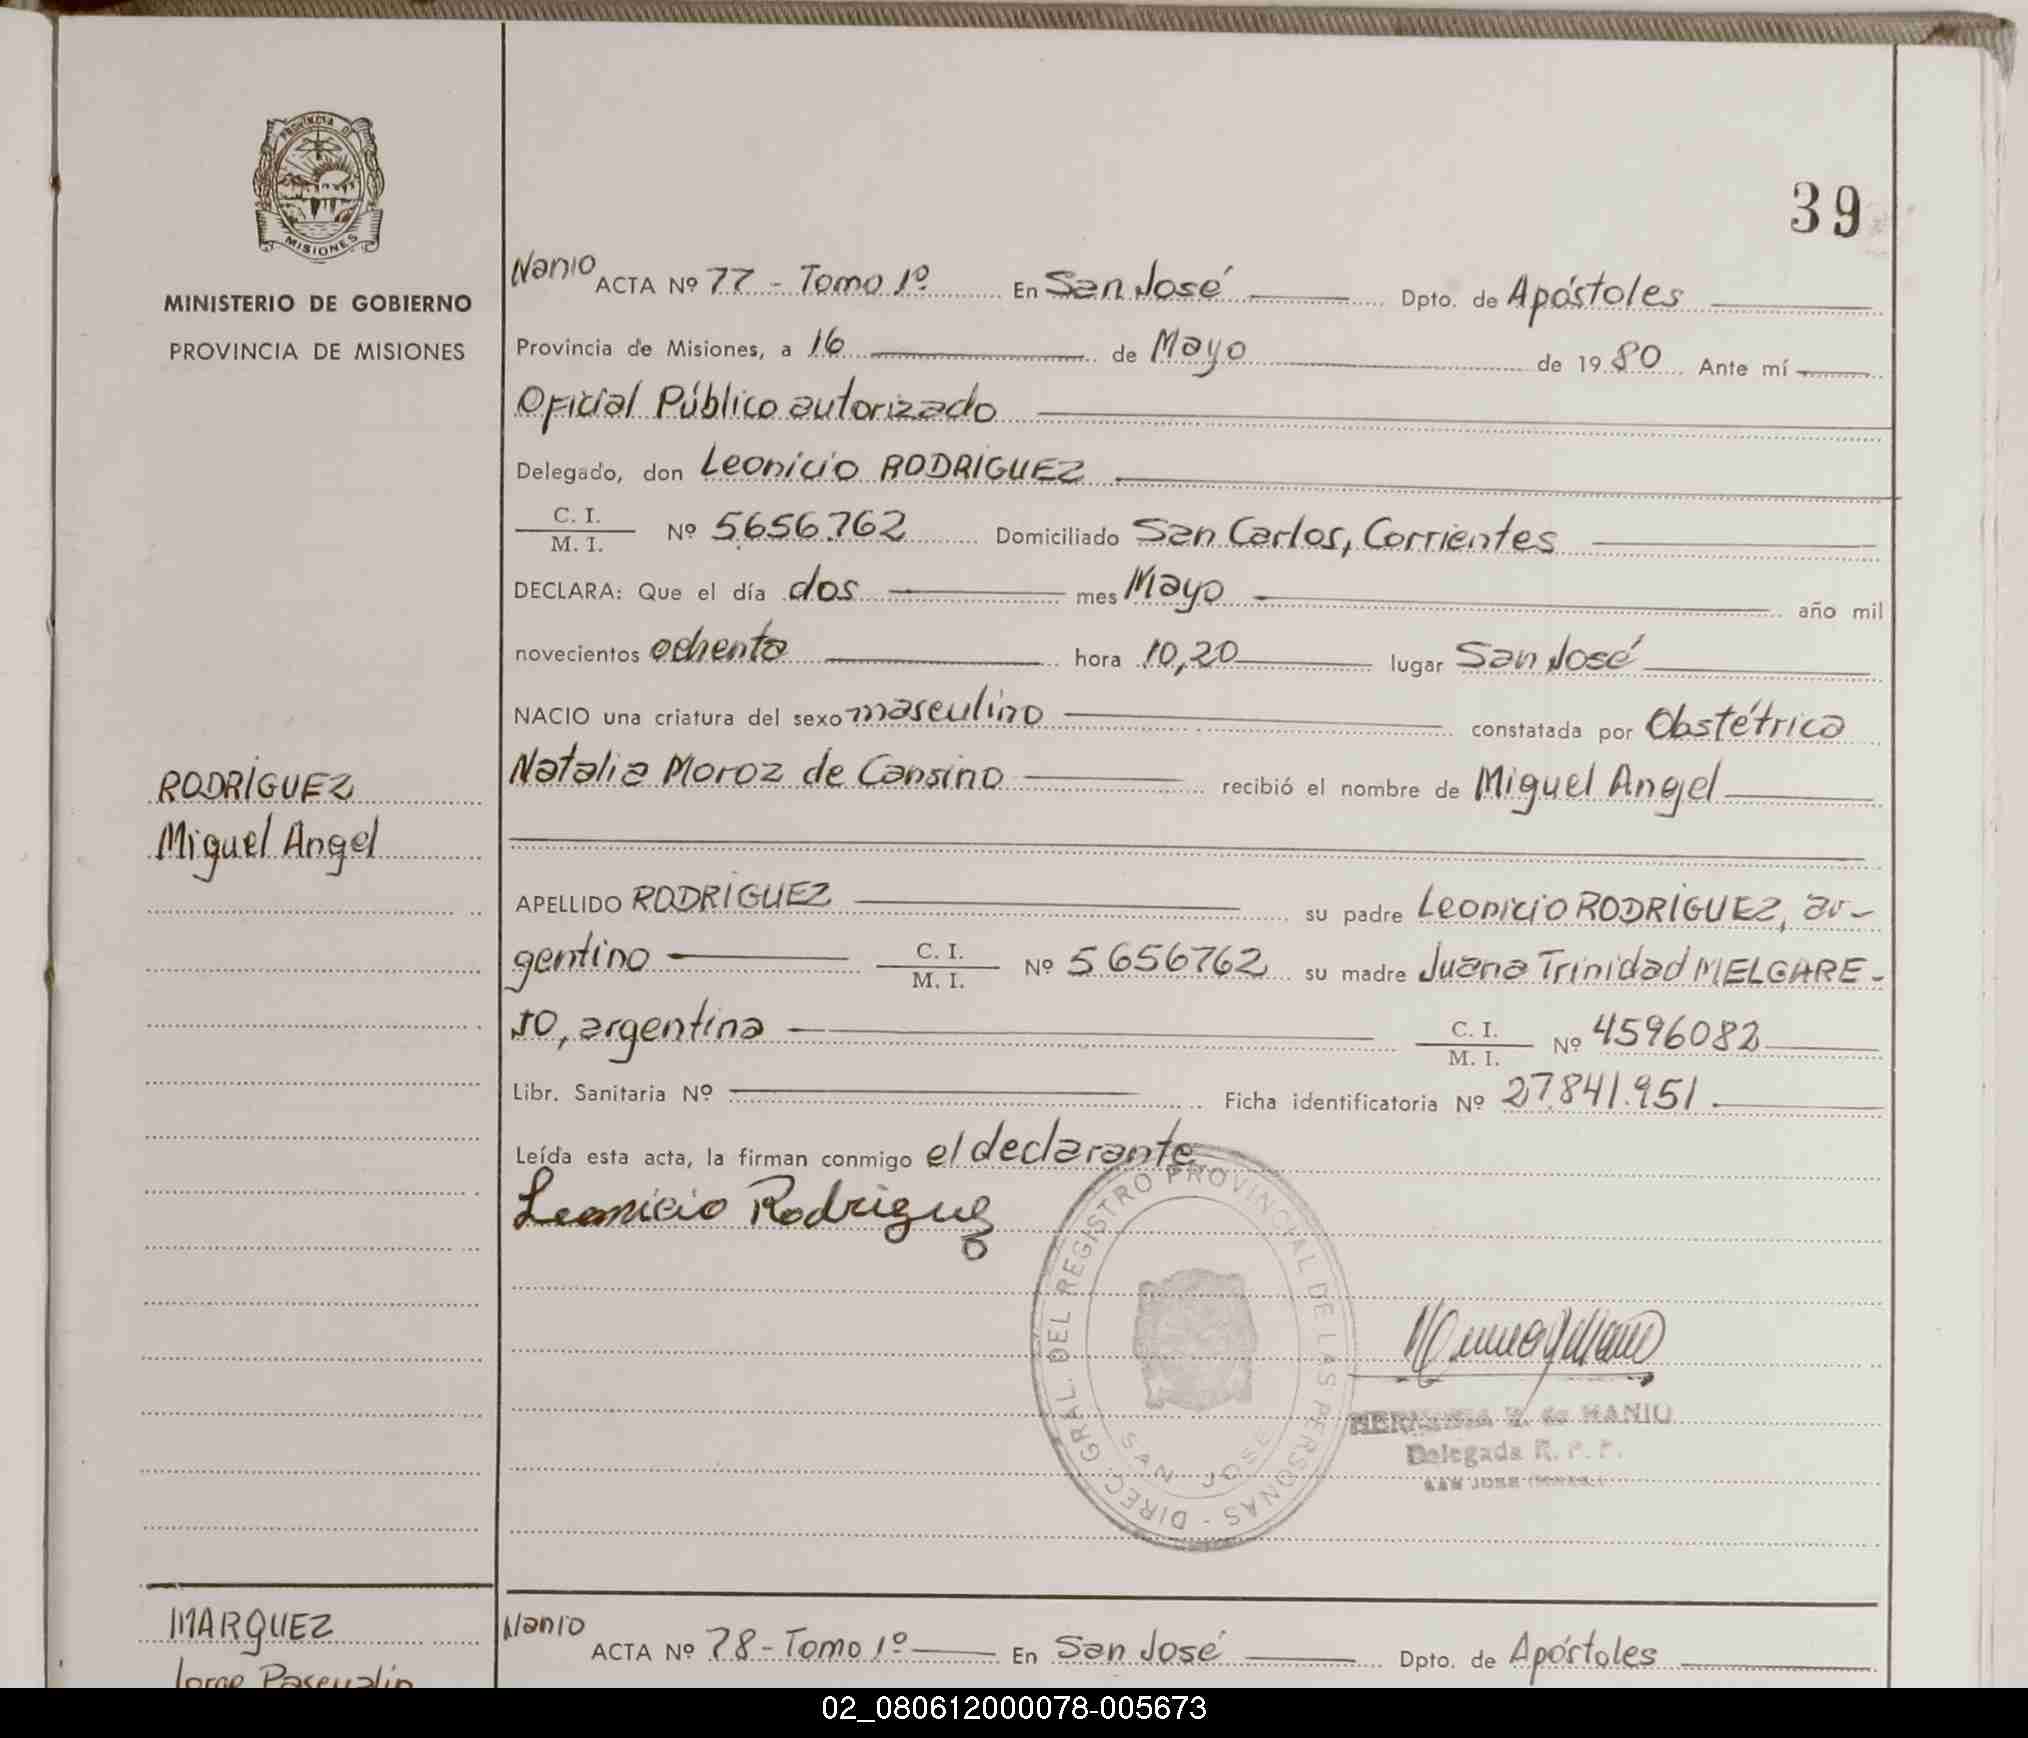 PROVINCIA DE
MISIONES
MINISTERIO DE GOBIERNO
PROVINCIA DE MISIONES
RODRÍGUEZ
Miguel Angel
39
Nanio ACTA Nº 77 - Tomo 1º En San José Dpto. de Apóstoles
Provincia de Misiones, a 16 de Mayo de 1980 Ante mí
Oficial Público autorizado
Delegado, don Leonicio RODRÍGUEZ
C. I. / M. I. Nº 5.656.762 Domiciliado San Carlos, Corrientes
DECLARA: Que el día dos mes Mayo año mil
novecientos ochenta hora 10,20 lugar San José
NACIO una criatura del sexo masculino constatada por Obstétrica
Natalia Moroz de Cansino recibió el nombre de Miguel Angel
APELLIDO RODRÍGUEZ su padre Leonicio RODRÍGUEZ, ar-
gentino C. I. / M. I. Nº 5.656762 su madre Juana Trinidad MELGARE-
JO, argentina C. I. / M. I. Nº 4596082
Libr. Sanitaria Nº Ficha identificatoria Nº 27.841.951
Leída esta acta, la firman conmigo el declarante
Leonicio Rodriguez
DIREC. GRAL. DEL REGISTRO PROVINCIAL DE LAS PERSONAS -
SAN JOSE
de NANIO
Delegada R. P. P.
SAN JOSE
MARQUEZ
Jorge Pascualin
Nanio ACTA Nº 78 - Tomo 1º En San José Dpto. de Apóstoles
02_080612000078-005673